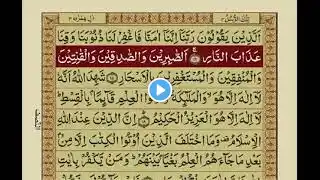 اَلَّذِيۡنَ يَقُوۡلُوۡنَ رَبَّنَاۤ اِنَّنَاۤ اٰمَنَّا فَاغۡفِرۡ لَنَا ذُنُوۡبَنَا وَقِنَا
عَذَابَ النَّارِ اَلصّٰبِرِيۡنَ وَالصّٰدِقِيۡنَ وَالۡقٰنِتِيۡنَ
وَالۡمُنۡفِقِيۡنَ وَالۡمُسۡتَغۡفِرِيۡنَ بِالۡاَسۡحَارِ شَهِدَ اللّٰهُ اَنَّهٗ
لَاۤ اِلٰهَ اِلَّا هُوَ وَالۡمَلٰٓئِكَةُ وَاُولُوا الۡعِلۡمِ قَآئِمًاۢ بِالۡقِسۡطِ
لَاۤ اِلٰهَ اِلَّا هُوَ الۡعَزِيۡزُ الۡحَكِيۡمُ اِنَّ الدِّيۡنَ عِنۡدَ اللّٰهِ
الۡاِسۡلَامُ وَمَا اخۡتَلَفَ الَّذِيۡنَ اُوۡتُوا الۡكِتٰبَ اِلَّا مِنۡۢ
بَعۡدِ مَا جَآءَهُمُ الۡعِلۡمُ بَغۡيًاۢ بَيۡنَهُمۡ وَمَنۡ يَّكۡفُرۡ بِاٰيٰتِ